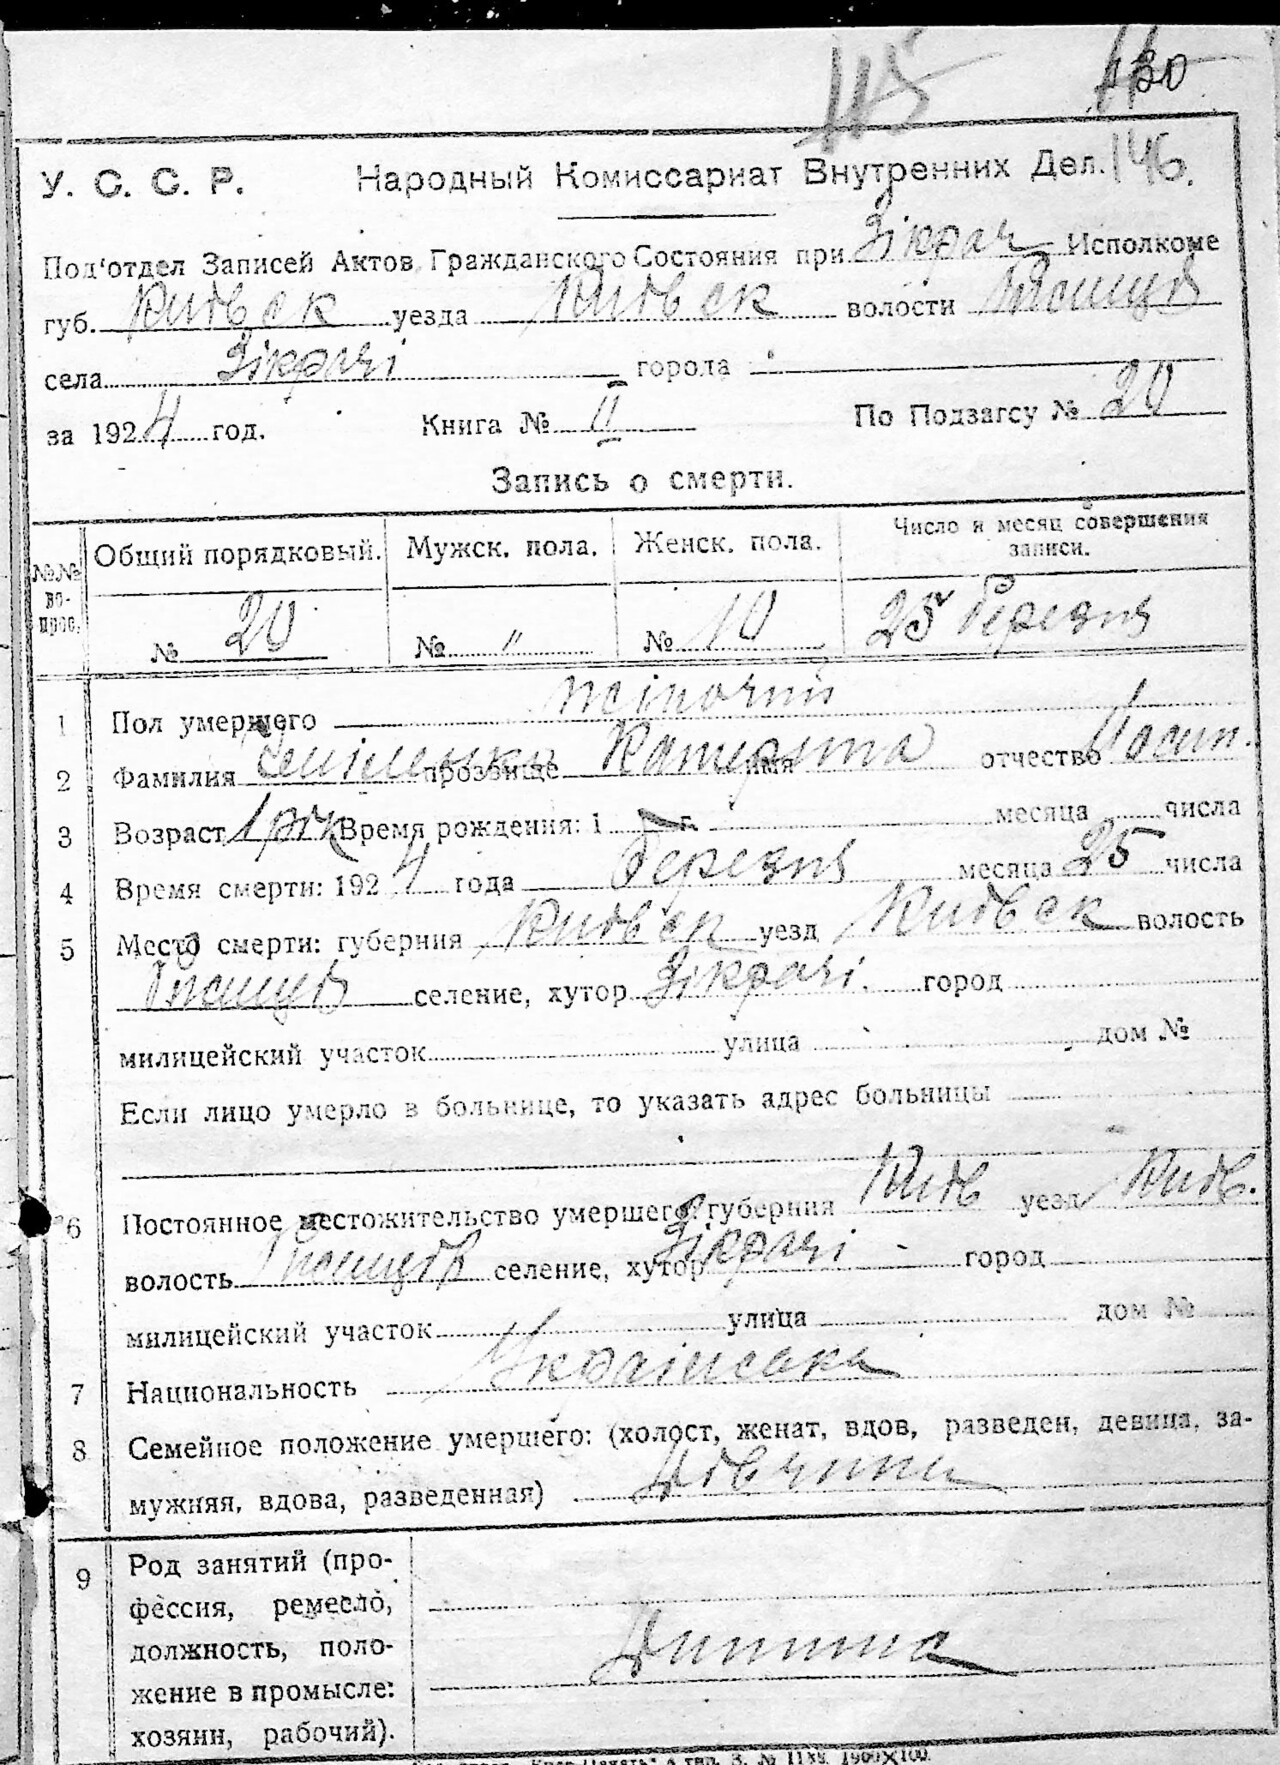 115 130
У. С. С. Р. Народный Комиссариат Внутренних Дел. 146.
Под'отдел Записей Актов Гражданского Состояния при Зікрач Исполкоме
губ. Київск уезда Київск волости
села Зікрачі города
за 1924 год. Книга № II По Подзагсу № 20
Запись о смерти.
№№ вопрос. Общий порядковый. Мужск. пола. Женск. пола. Число и месяц совершения записи.
№ 20 № " № 10 25 березня
1 Пол умершего жіночий
2 Фамилия прозвище Катерина имя отчество Йосип.
3 Возраст 1 рік Время рождения: 1 г. месяца числа
4 Время смерти: 1924 года березня месяца 25 числа
5 Место смерти: губерния Київск уезд Київск волость
селение, хутор Зікрачі. город
милицейский участок улица дом №
Если лицо умерло в больнице, то указать адрес больницы
6 Постоянное местожительство умершего: губерния Київ уезд Київ.
волость селение, хутор Зікрачі - город
милицейский участок улица дом №
7 Национальность Українська
8 Семейное положение умершего: (холост, женат, вдов, разведен, девица, за-
мужняя, вдова, разведенная) Дівчина
9 Род занятий (про-
фессия, ремесло,
должность, поло- Дитина
жение в промысле:
хозяин, рабочий).